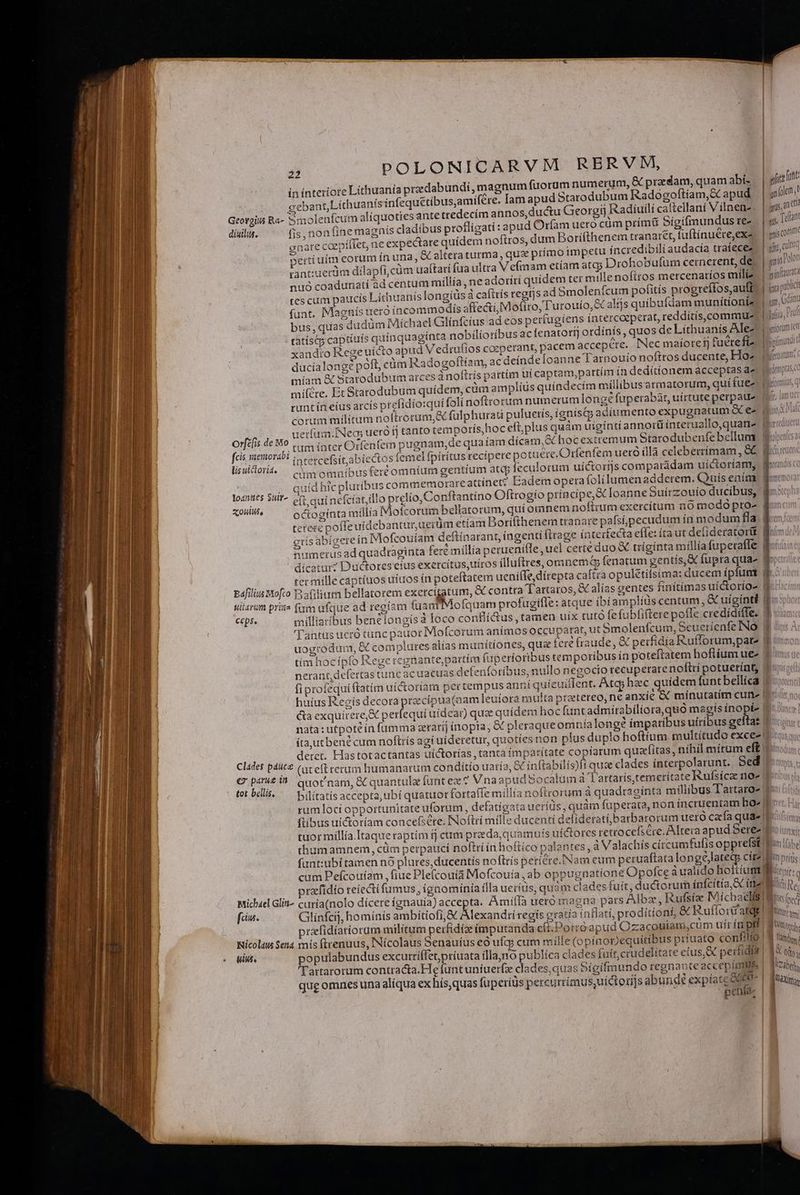 22 POLONICARVM RERVM,
in interiore Lithuania prædabundi, magnum fuorum numerum, & prædam, quam abi-
gebant, Lithuanis insequētibus, amisêre. Iam apud Starodubum Radogostiam, & apud
Georgius Ra- Smolenscum aliquoties ante tredecim annos, ductu Georgij Radiuili castellani Vilnen-
diuilus. sis, non sine magnis cladibus profligati: apud Orsam uero cùm primũ Sigismundus re-
gnare cœpisset, ne expectare quidem nostros, dum Boristhenem tranarēt, sustinuêre, ex-
perti uim eorum in una, & altera turma, quæ primo impetu incredibili audacia traiece-
rant: uerùm dilapsi, cùm uastari sua ultra Vesinam etiam atq; Drohobusum cernerent, de
nuò coadunati ad centum millia, ne adoriri quidem ter mille nostros mercenarios mili-
tes cum paucis Lithuanis longiùs à castris regijs ad Smolenscum positis progressos, ausi
sunt. Magnis uerò incommodis affecti, Mostiro, Turouio, & alijs quibusdam munitioni-
bus, quas dudùm Michael Glinscius ad eos perfugiens interceperat, redditis, commu-
tatisq; captiuis quinquaginta nobilioribus ac senatorij ordinis, quos de Lithuanis Ale-
xandro Rege uicto apud Vedrusios cœperant, pacem accepêre. Nec maiore ij fuêre fi-
ducia longè pòst, cùm Radogostiam, ac deinde Ioanne Tarnouio nostros ducente, Ho-
miam & Starodubum arces à nostris partim ui captam, partim in deditionem acceptas a-
misêre. Et Starodubum quidem, cùm ampliùs quindecim millibus armatorum, qui fue-
runt in eius arcis præsidio: qui soli nostrorum numerum longè superabāt, uirtute perpau-
corum militum nostrorum, & fulphuratī pulueris, ignisq; adiumento expugnatum & e-
uersum. Neq; uerò ij tanto temporis, hoc est, plus quàm uiginti annorũ interuallo, quan-
Orsesis de Mo tum inter Orsensem pugnam, de qua iam dicam, & hoc extremum Starodubense bellum
scis memorabi intercessit, abiectos semel spiritus recipere potuêre. Orsensem uerò illā celeberrimam, &
lis uictoria. cùm omnibus ferè omnium gentium atq; seculorum uictorijs comparādam uictoriam,
quid hîc pluribus commemorare attinet? Eadem opera soli lumen adderem. Quis enim
Ioannes Suir- est, qui nesciat, illo prelio, Constantino Ostrogio principe, & Ioanne Suirzouio ducibus,
zouius. octoginta millia Moscorum bellatorum, qui omnem nostrum exercitum nō modò pro-
terere posse uidebantur, uerùm etiam Boristhenem tranare passi, pecudum in modum fla
gris abigere in Moscouiam destinarant, ingenti strage interfecta esse: ita ut desideratorũ
numerus ad quadraginta ferè millia peruenisse, uel certè duo & triginta millia superasse
dicatur? Ductores eius exercitus, uiros illustres, omnemq; senatum gentis, & supra qua-
ter mille captiuos uiuos in potestatem uenisse, direpta castra opulētissima: ducem ipsum
Basilius Mosco Basilium bellatorem exercitatum, & contra Tartaros, & alias gentes finitimas uictorio-
uiarum prin- sum usque ad regiam suam Mosquam profugisse: atque ibi ampliùs centum, & uiginti
ceps. milliaribus bene longis à loco conflictus, tamen uix tutò se subsistere posse credidisse.
Tantus uerò tunc pauor Moscorum animos occuparat, ut Smolenscum, Seueriense No
uogrodum, & complures alias munitiones, quæ ferè fraude, & perfidia Russorum, par-
tim hoc ipso Rege regnante, partim superioribus temporibus in potestatem hostium ue-
nerant, desertas tunc ac uacuas defensoribus, nullo negocio recuperare nostri potuerint,
si prosequi statim uictoriam per tempus anni quieuissent. Atq; hæc quidem sunt bellica
huius Regis decora præcipua (nam leuiora multa prætereo, ne anxiè & minutatim cun-
cta exquirere, & persequi uidear) quæ quidem hoc sunt admirabiliora, quò magis inopi-
nata: utpote in summa ærarij inopia, & pleraque omnia longè imparibus uiribus gesta:
ita, ut bene cum nostris agi uideretur, quoties non plus duplo hostium multitudo exce-
deret. Has tot ac tantas uictorias, tanta imparitate copiarum quæsitas, nihil mirum est
Clades paucæ (ut est rerum humanarum conditio uaria, & instabilis) si quæ clades interpolarunt. Sed
& paruæ in quot nam, & quantulæ sunt eæ? Vna apud Socalum à Tartaris, temeritate Rusicæ no-
tot bellis. bilitatis accepta, ubi quatuor fortasse millia nostrorum à quadraginta millibus Tartaro-
rum loci opportunitate usorum, defatigata ueriùs, quàm superata, non incruentam ho-
stibus uictoriam concessêre. Nostri mille ducenti desiderati, barbarorum uerò cæsa qua-
tuor millia. Itaque raptim ij cum præda, quamuis uictores retrocessêre. Altera apud Sere-
thum amnem, cùm perpauci nostri in hostico palantes, à Valachis circumfusis oppressi
sunt: ubi tamen nō plures, ducentis nostris periêre. Nam eum peruastata longè, lateq; cir-
cum Pescouiam, siue Plescouiā Moscouia, ab oppugnatione Oposcę à ualido hostium
præsidio reiecti sumus, ignominia illa ueriùs, quàm clades fuit, ductorum inscitia, & in-
Michael Glin- curia (nolo dicere ignauia) accepta. Amissa uerò magna pars Albæ, Rusiæ Michaelis
scius. Glinscij, hominis ambitiosi, & Alexandri regis gratia inflati, proditioni, & Russorũ atqz
præsidiariorum militum perfidiæ imputanda est. Porrò apud Ozacouiam, cùm uir in pri
Nicolaus Sena mis strenuus, Nicolaus Senauius eò usq; cum mille (opinor) equitibus priuato consilio
uius. populabundus excurrisset, priuata illa, nō publica clades fuit, crudelitate eius, & perfidia
Tartarorum contracta. He sunt uniuersæ clades, quas Sigismundo regnante accepimus,
quę omnes una aliqua ex his, quas superiùs percurrimus, uictorijs abundè expiatę &
pensa-